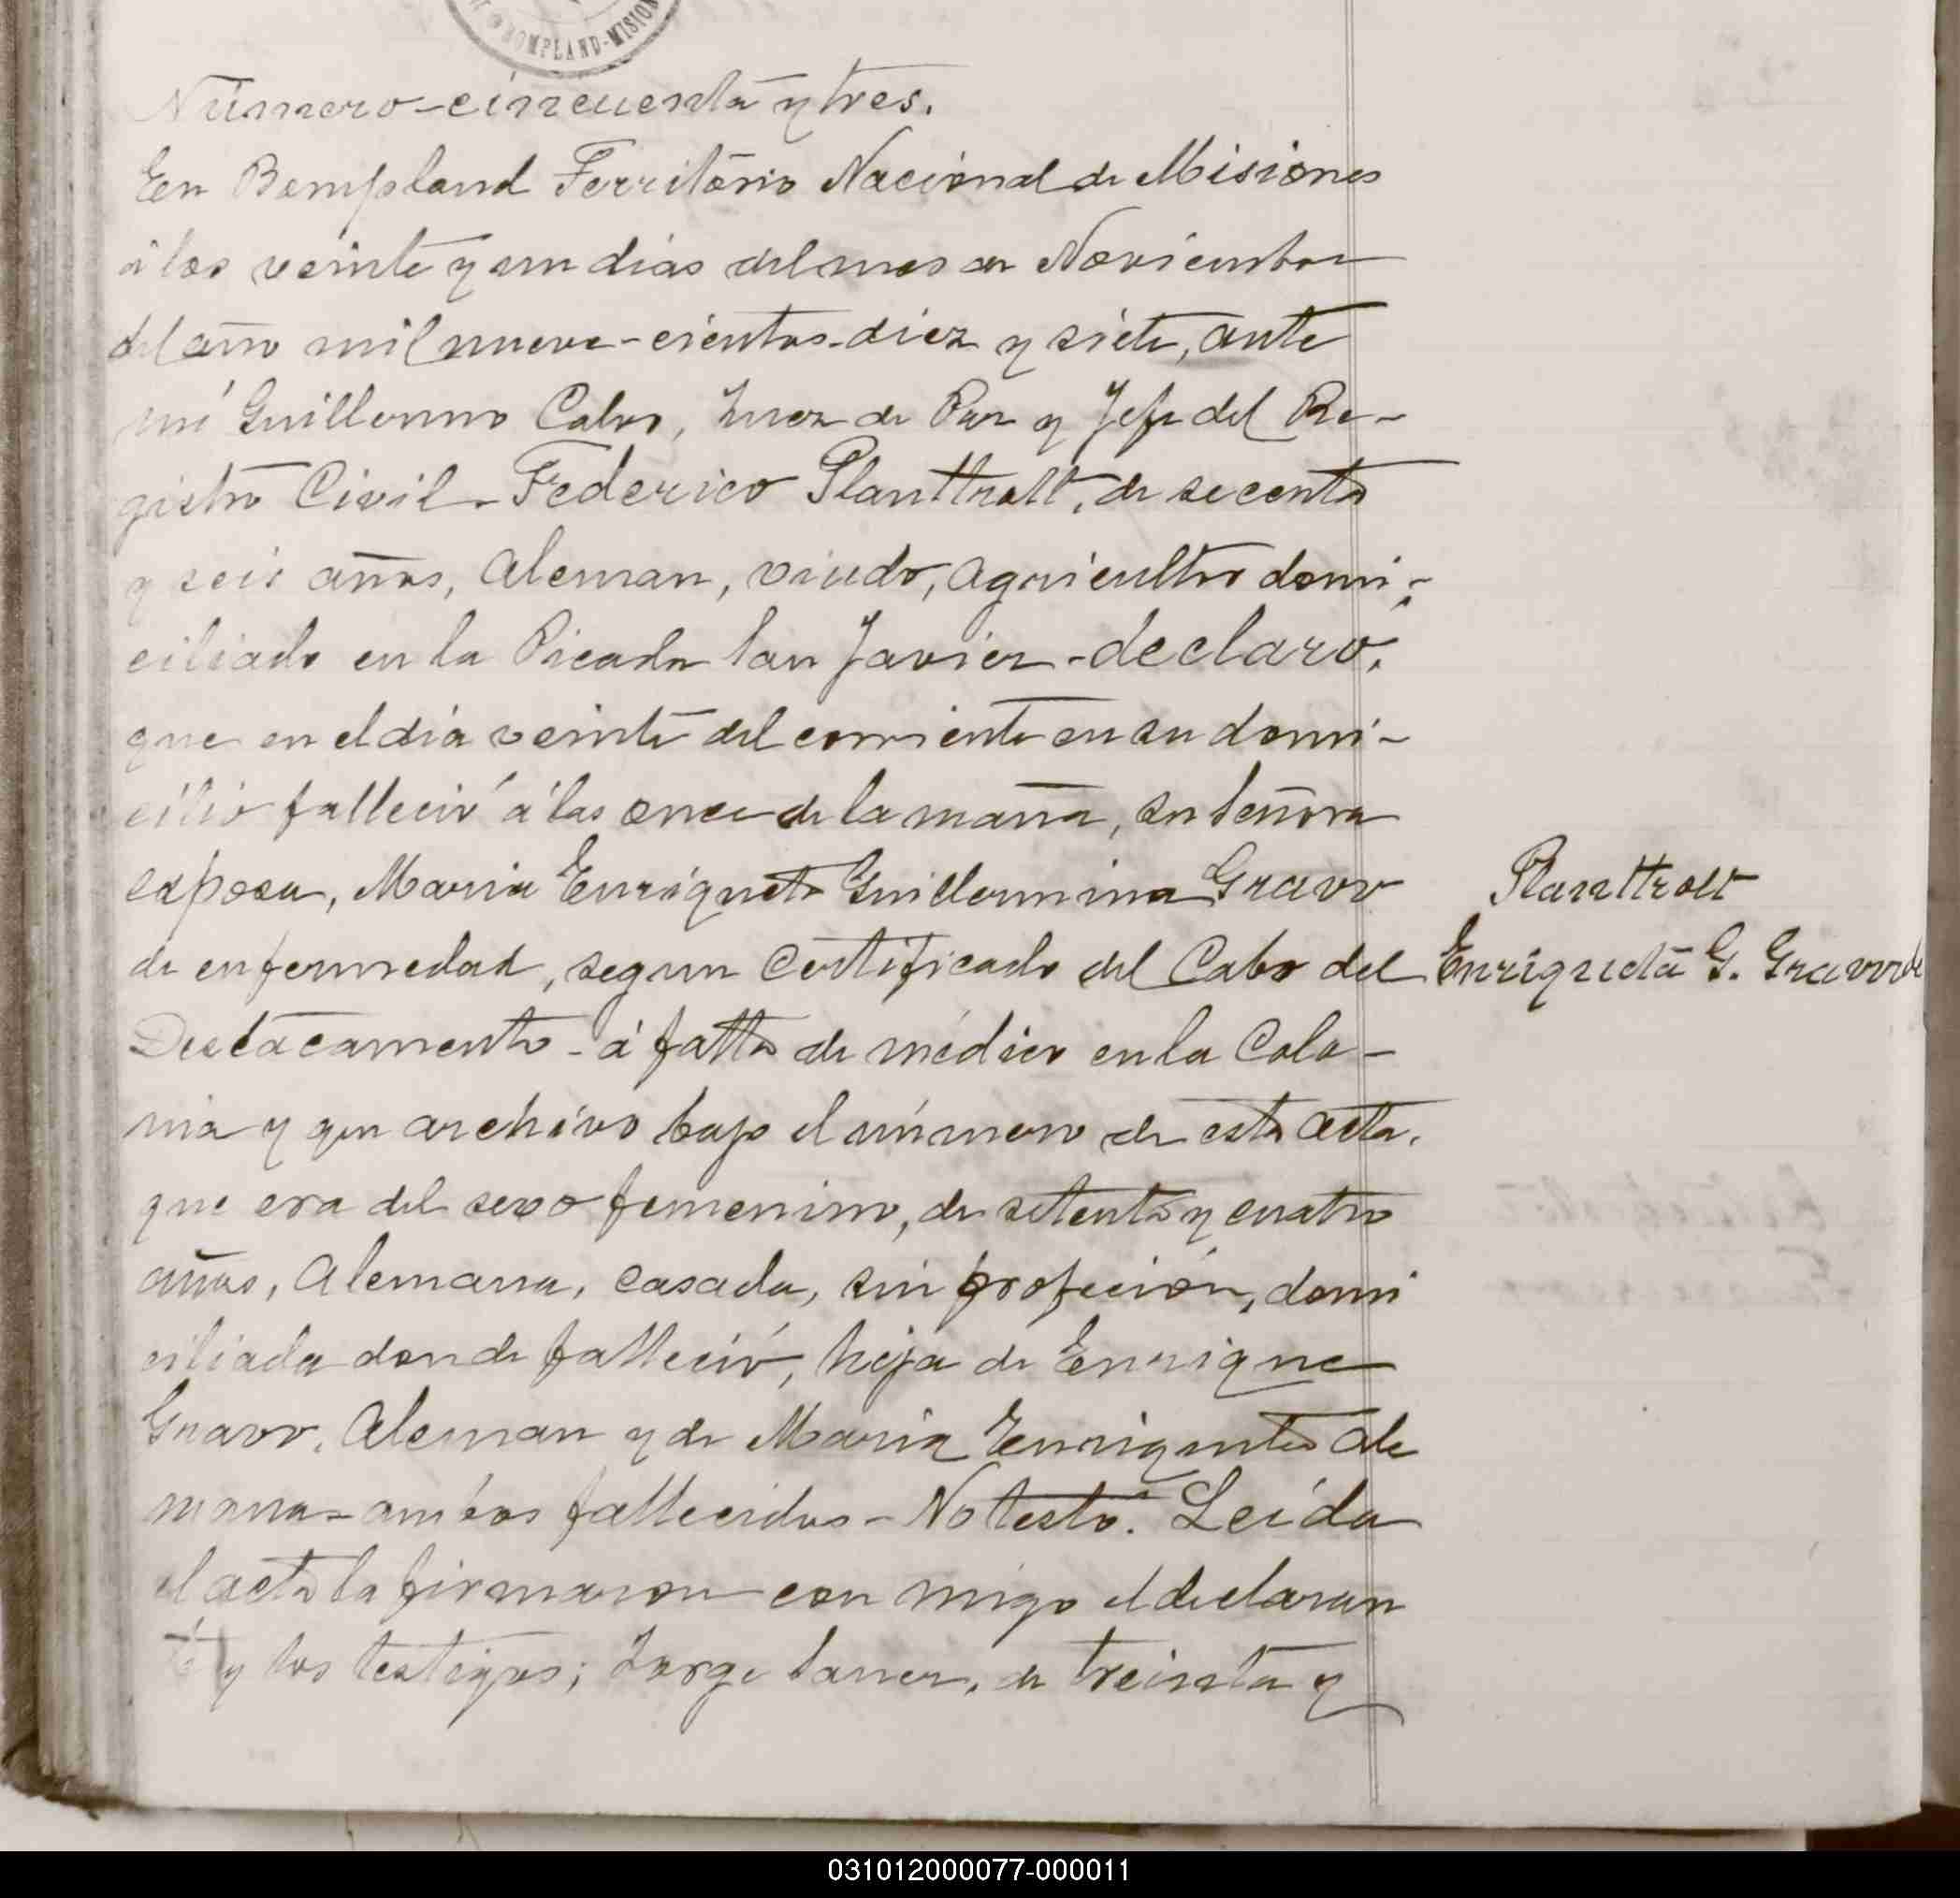 BOMPLAND-MISION
Número-cincuenta y tres.
En Bompland Territorio Nacional de Misiones
á los veinte y un dias del mes de Noviembre
del año mil nueve-cientos-diez y siete, ante
mi Guillermo Calvo, Juez de Paz y Jefe del Re-
gistro Civil-Federico Planttrolt, de secenta
y seis años, Aleman, viudo, agricultor domi-
ciliado en la Picada San Javier-declaró,
que en el dia veinte del corriente en su domi-
cilio falleció á las once de la maña, su señora
esposa, Maria Enriqueta Guillermina Gravv
Planttrolt
de enfermedad, segun certificado del Cabo del
Enriqueta G. Gravv de
Destacamento-á falta de médico en la Colo-
nia y que archivo bajo el número de esta acta.
que era del sexo femenino, de setenta y cuatro
años, Alemana, casada, sin profeción, domi
ciliada donde falleció, hija de Enrique
Gravv, Aleman y de Maria Enriqueta Ale
mana-ambos fallecidos-No testó. Leída
el acta la firmaron con migo el declaran
te y los testigos; Jorge de treinta y
031012000077-000011